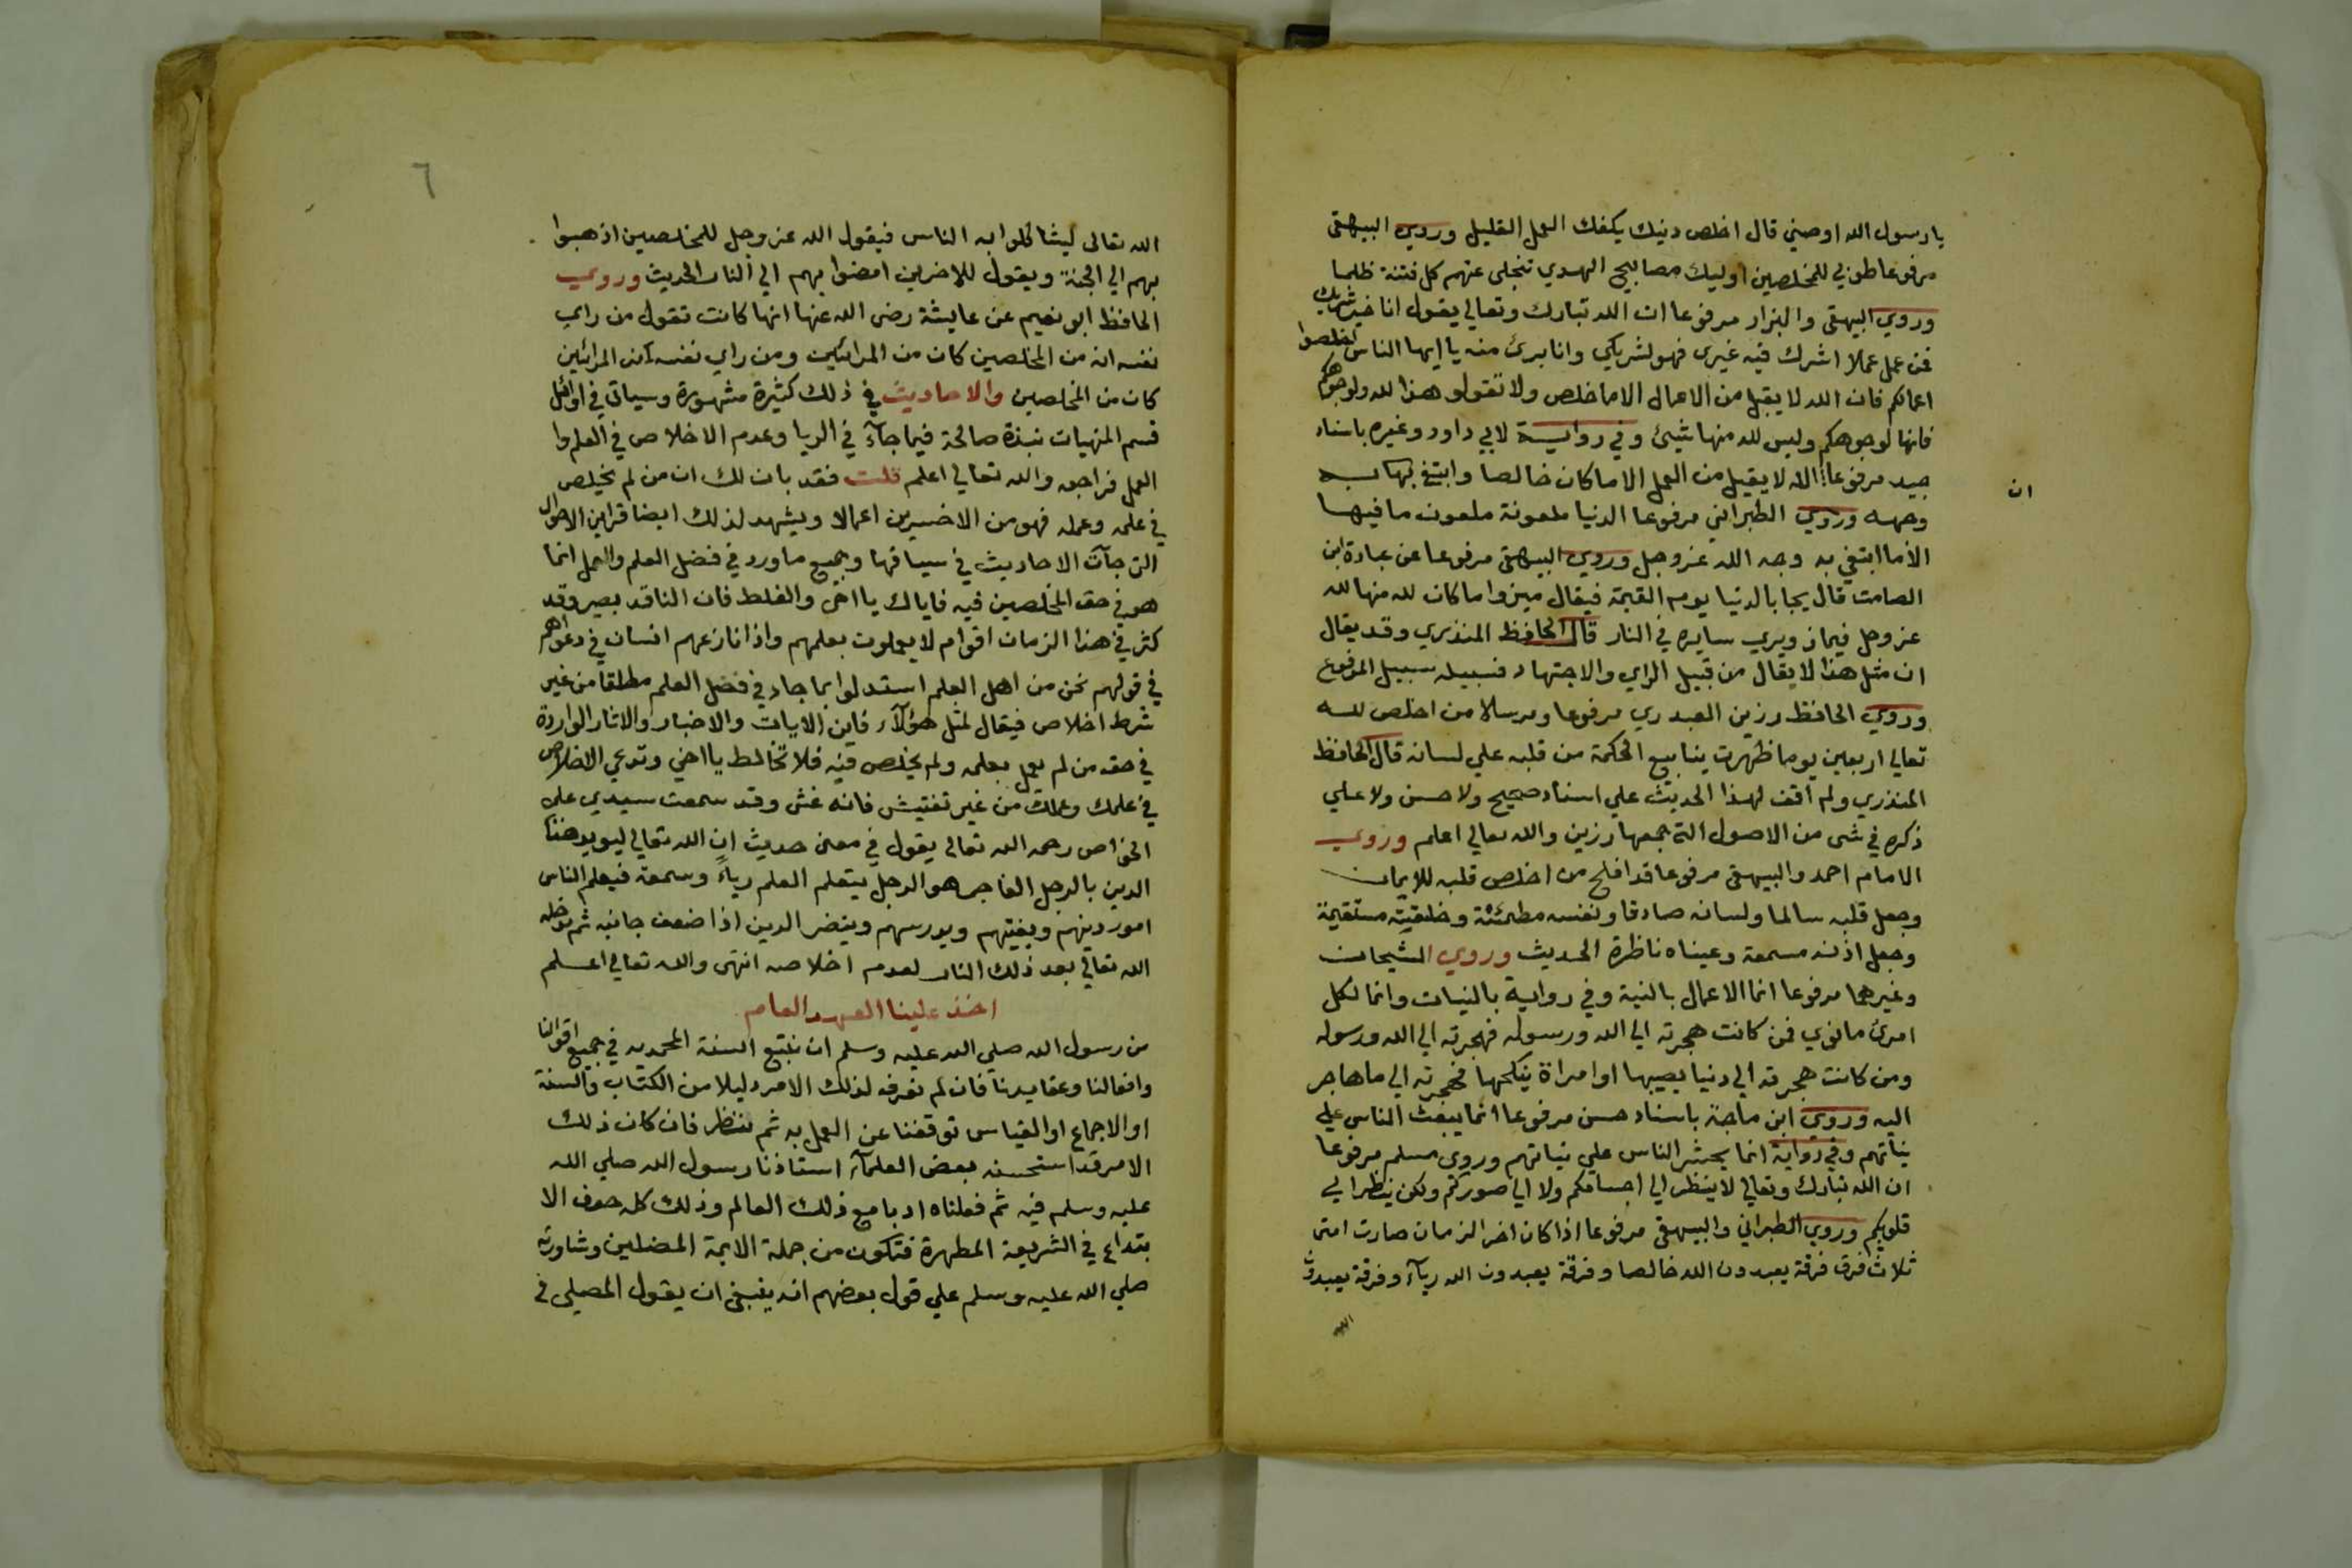 يا رسول الله اوصني قال اخلص دينك يكفك العمل القليل وروي البيهقي
مرفوعا طوبي للمخلصين اوليك مصابيح الهدي تنجلى عنهم كل فتنة ظلما
وروي البيهقى والبزار مرفوعا ان الله تبارك وتعالي يقول انا خير شريك
فمن عمل عملا اشرك فيه غيرى فهو لشريكي وانا برئ منه يا ايها الناس اخلصوا
اعمالكم فان الله لا يقبل من الاعمال الا ما خلص ولا تقولو هذا لله ولوجوهكم
فانها لوجوهكم وليس لله منها شيئ وفي رواية لابي داود وغيره باسناد
جيد مرفوعا الله لا يقبل من العمل الا ما كان خالصا وابتغي بها به
ان
وجهه وروي الطبراني مرفوعا الدنيا ملعونة ملعون ما فيها
الا ما ابتغي به وجه الله عز وجل وروي البيهقى مرفوعا عن عبادة ابن
الصامت قال يجا بالدنيا يوم القيمة فيقال ميزوا ما كان لله منها لله
عز وجل فيماز ويرمي سايره في النار قال الحافظ المنذري وقد يقال
ان مثل هذا لا يقال من قبيل الراي والاجتهاد فسبيله سبيل المرفوع
وروي الحافظ رزين العبدري مرفوعا ومرسلا من اخلص لله
تعالي اربعين يوما ظهرت ينابيع الحكمة من قلبه علي لسانه قال الحافظ
المنذري ولم اقف لهذا الحديث علي اسناد صحيح ولا حسن ولا علي
ذكره في شى من الاصول التي جمعها رزين والله تعالي اعلم وروي
الامام احمد والبيهقى مرفوعا قد افلح من اخلص قلبه للايمان
وجعل قلبه سالما ولسانه صادقا ونفسه مطمئنة وخليقته مستقيمة
وجعل اذنه مسمعة وعيناه ناظرة الحديث وروي الشيخان
وغيرهما مرفوعا انما الاعمال بالنية وفي رواية بالنيات وانما لكل
امرئ ما نوي فمن كانت هجرته الي الله ورسوله فهجرته الي الله ورسوله
ومن كانت هجرته الي دنيا يصيبها او امراة ينكحها فهجرته الي ما هاجر
اليه وروي ابن ماجة باسناد حسن مرفوعا انما يبعث الناس علي
نياتهم وفي رواية انما يحشر الناس علي نياتهم وروي مسلم مرفوعا
ان الله تبارك وتعالي لا ينظر الي اجسامكم ولا الي صوركم ولكن ينظر الي
قلوبكم وروي الطبراني والبيهقى مرفوعا اذا كان اخر الزمان صارت امتى
ثلاث فرق فرقة يعبدون الله خالصا وفرقة يعبدون الله رياء وفرقة يعبدون
الله
٦
الله تعالى ليشاكلوا به الناس فيقول الله عز وجل للمخلصين اذهبوا
بهم الي الجنة ويقول للاخرين امضوا بهم الي النار الحديث وروي
الحافظ ابو نعيم عن عايشة رضى الله عنها انها كانت تقول من راي
نفسه انه من المخلصين كان من المرائين ومن راي نفسه من المرائين
كان من المخلصين والاحاديث في ذلك كثيرة مشهورة وسياتي في اوائل
قسم المنهيات نبذة صالحة فيما جاء في الريا وعدم الاخلاص في العلم وا
العمل فراجعه والله تعالي اعلم قلت فقد بان لك ان من لم يخلص
في علمه وعمله فهو من الاخسرين اعمالا ويشهد لذلك ايضا قراين الاحوال
التى جآت الاحاديث في سياقها وجميع ما ورد في فضل العلم والعمل انما
هو في حق المخلصين فيه فاياك يا اخى والغلط فان الناقد بصير وقد
كثر في هذا الزمان اقوام لا يعملون بعلمهم واذا نازعهم انسان في دعواهم
في قولهم نحن من اهل العلم استدلوا بما جاء في فضل العلم مطلقا من غير
شرط اخلاص فيقال لمثل هؤلآء فاين الايات والاخبار والاثار الواردة
في حق من لم يعمل بعلمه ولم يخلص فيه فلا تخالط يا اخي وتدعي الاخلاص
في علمك وعملك من غير تفتيش فانه غش وقد سمعت سيدي على
الخواص رحمه الله تعالى يقول في معنى حديث ان الله تعالي ليويد هذا
الدين بالرجل الفاجر هو الرجل يتعلم العلم رياءً وسمعة فيعلم الناس
امور دينهم ويفتيهم ويدرسهم وينصر الدين اذا ضعف جانبه ثم يدخله
الله تعالي بعد ذلك النار لعدم اخلاصه انتهى والله تعالي اعلم
اخذ علينا العهد العام
من رسول الله صلي الله عليه وسلم ان نتبع السنة المحمدية في جميع اقوالنا
وافعالنا وعقايدنا فان لم نعرف لذلك الامر دليلا من الكتاب والسنة
او الاجماع او القياس توقفنا عن العمل به ثم ننظر فان كان ذلك
الامر قد استحسنه بعض العلمآء استاذنا رسول الله صلي الله
عليه وسلم فيه ثم فعلناه ادبا مع ذلك العالم وذلك كله خوف الا
بتداع في الشريعة المطهرة فتكون من جملة الايمة المضلين وشاورته
صلي الله عليه وسلم علي قول بعضهم انه ينبغى ان يقول المصلى في